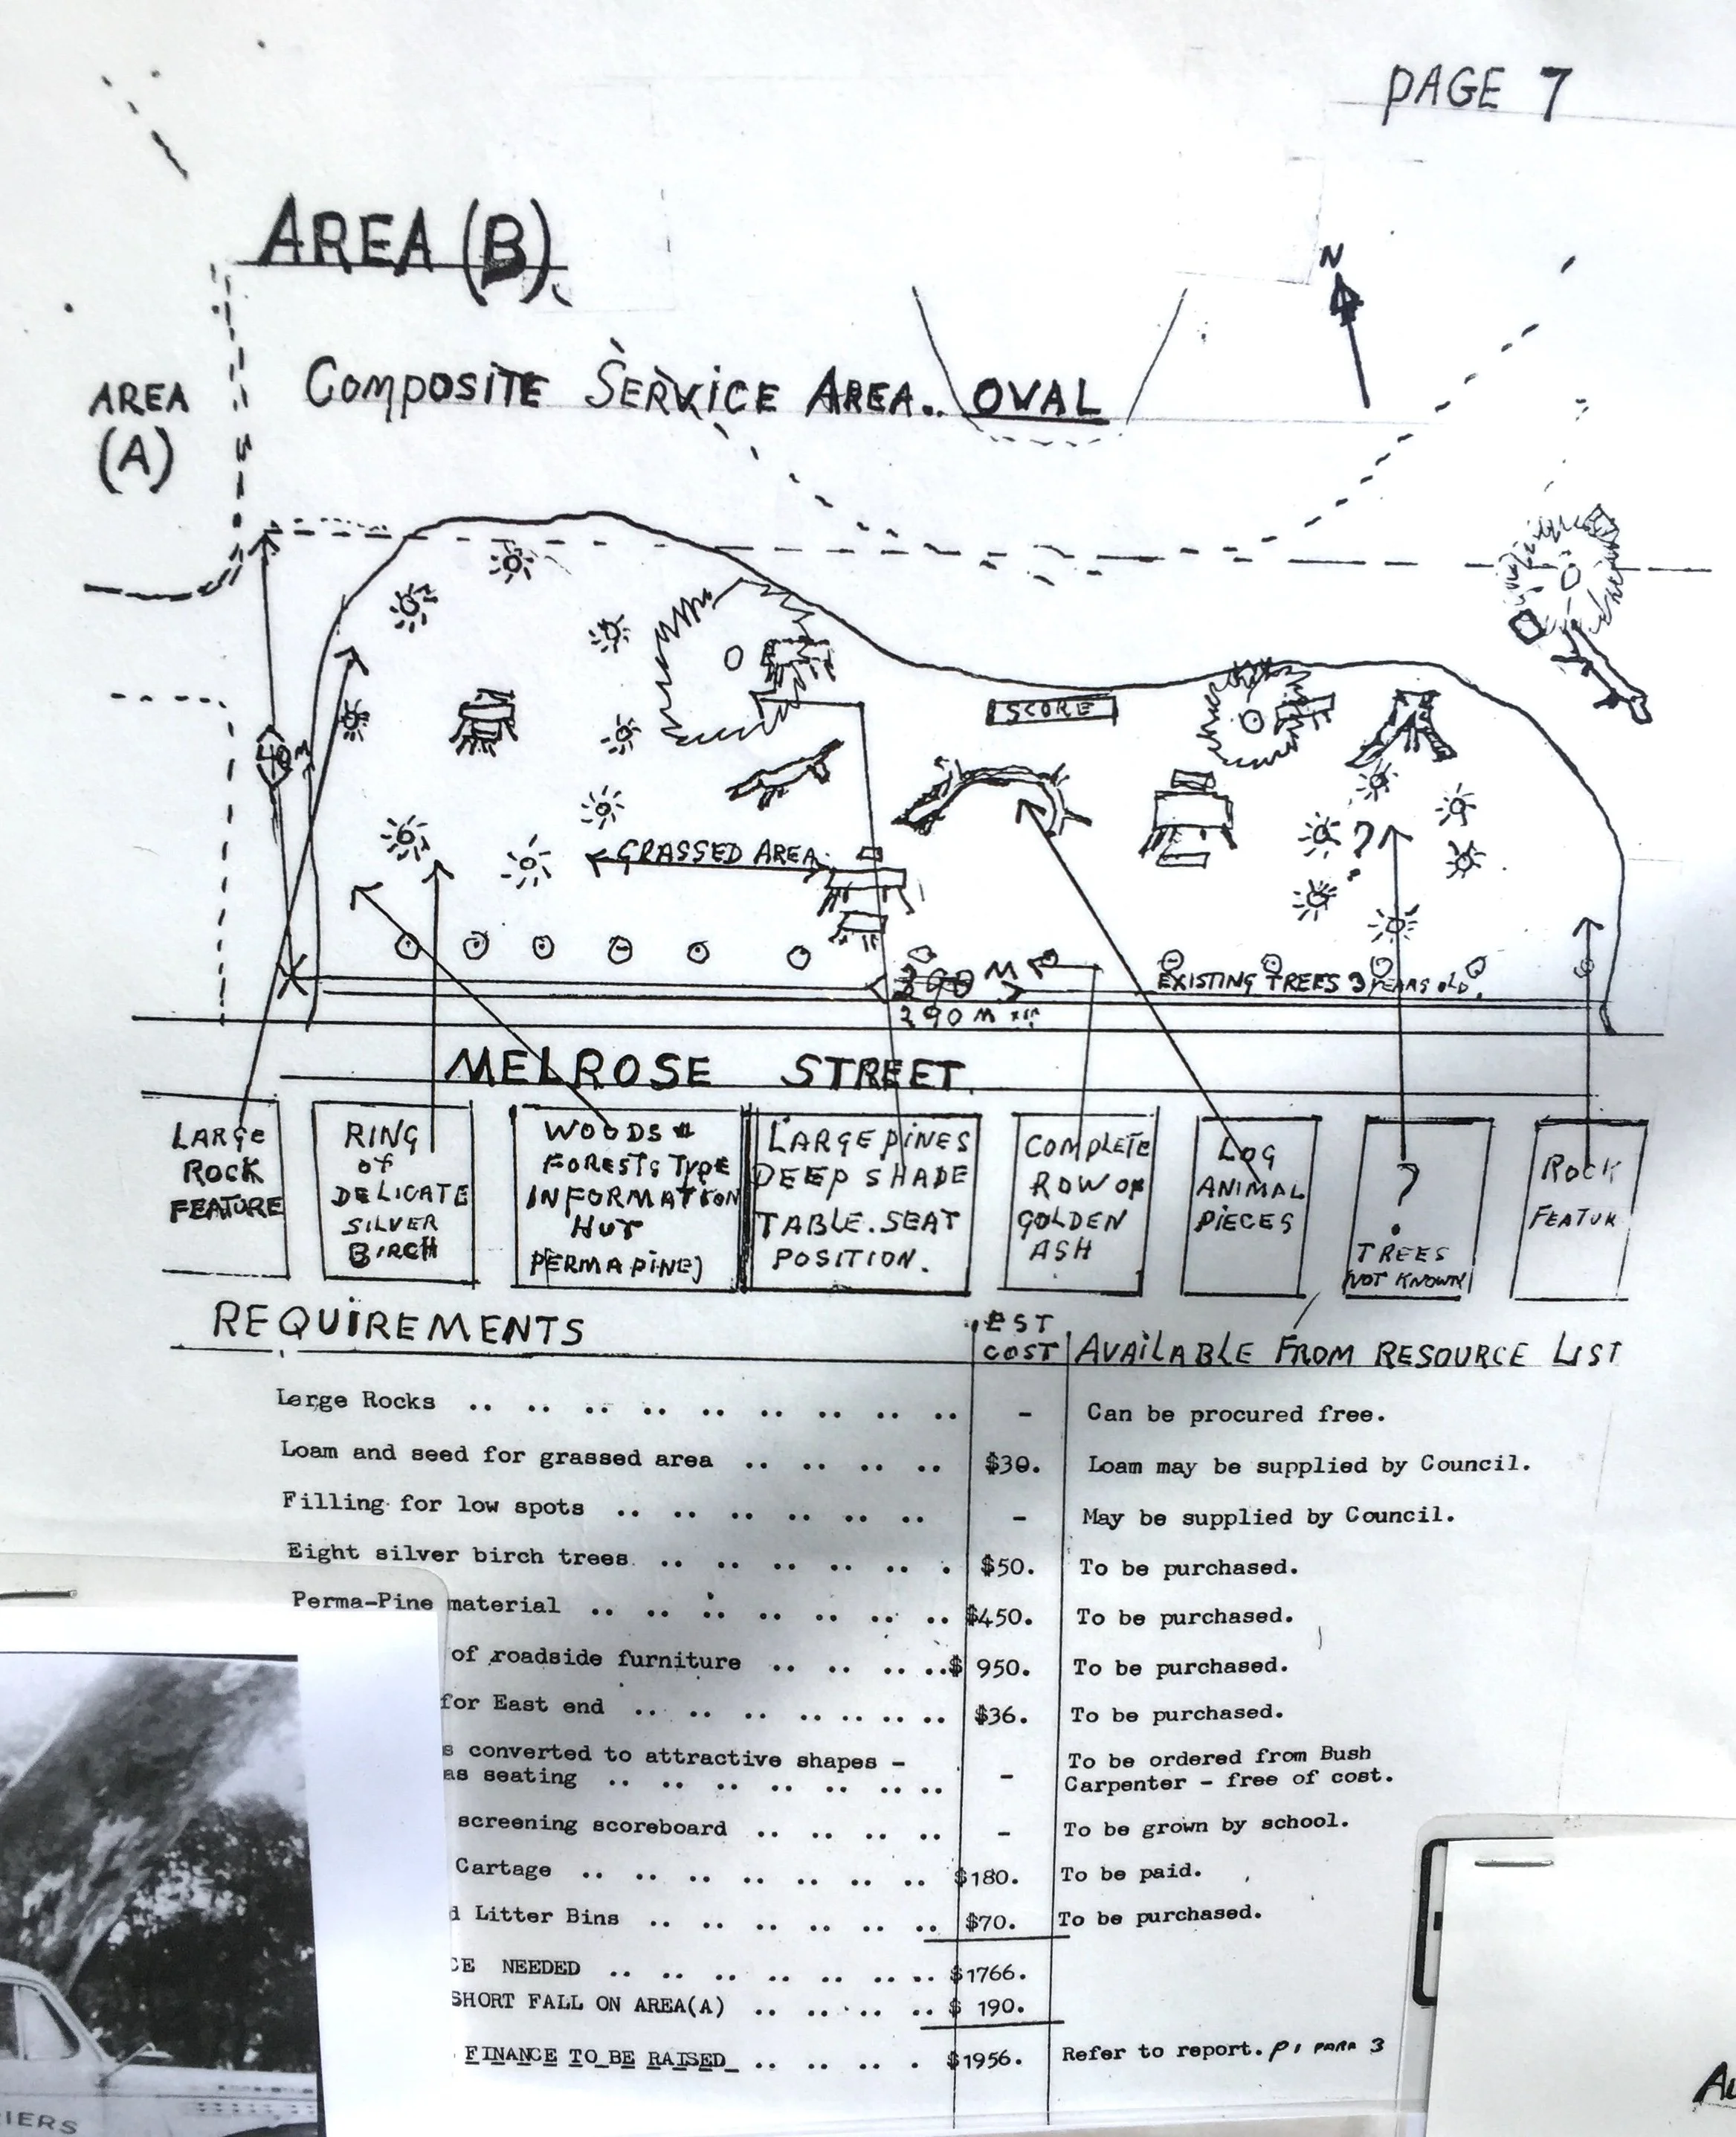 PAGE 7
AREA (B).
N
AREA
(A)
COMPOSITE SERVICE AREA.. OVAL
40M
SCORE
?
GRASSED AREA
290 M
EXISTING TREES 9 YEARS OLD.
290 M
MELROSE STREET.
LARGE
ROCK
FEATURE
RING
OF
DELICATE
SILVER
BIRCH
WOODS &
FORESTS TYPE
INFORMATION
HUT
PERMAPINE)
LARGE PINES
DEEP SHADE
TABLE.SEAT
POSITION.
COMPLETE
ROW OF
GOLDEN
ASH
LOG
ANIMAL
PIECES
?
TREES
NOT KNOWN
ROCK
FEATUR
REQUIREMENTS EST COST AVAILABLE FROM RESOURCE LIST
Large Rocks .. .. .. .. .. .. .. .. .. - Can be procured free.
Loam and seed for grassed area .. .. .. .. $30. Loam may be supplied by Council.
Filling for low spots .. .. .. .. .. .. - May be supplied by Council.
Eight silver birch trees .. .. .. .. .. . $50. To be purchased.
Perma-Pine material .. .. .. .. .. .. .. $450. To be purchased.
of roadside furniture .. .. .. .. $ 950. To be purchased.
for East end .. .. .. .. .. .. $36. To be purchased.
s converted to attractive shapes - To be ordered from Bush
as seating .. .. .. .. .. .. .. - Carpenter - free of cost.
screening scoreboard .. .. .. .. - To be grown by school.
Cartage .. .. .. .. .. .. .. $180. To be paid.
d Litter Bins .. .. .. .. .. .. $70. To be purchased.
CE NEEDED .. .. .. .. .. .. .. $1766.
SHORT FALL ON AREA(A) .. .. .. .. $ 190.
FINANCE TO BE RAISED .. .. .. . $1956. Refer to report. P1 PARA 3
IERS